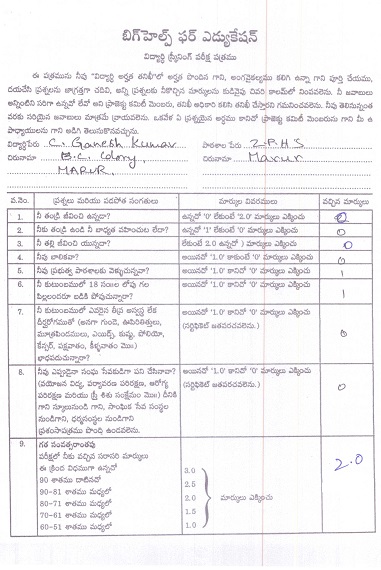 బిగ్‌హెల్ప్ ఫర్ ఎడ్యుకేషన్
విద్యార్థి స్క్రీనింగ్ పరీక్ష పత్రము
ఈ పత్రమును నీవు "విద్యార్థి అర్హత తనిఖీ"లో అర్హత పొందిన గాని, అంగవైకల్యము కలిగి ఉన్నా గాని పూర్తి చేయుము,
దయచేసి ప్రశ్నలను జాగ్రత్తగా చదివి, అన్ని ప్రశ్నలకు నీకొచ్చిన మార్కులను కుడివైపు చివరి కాలమ్‌లో నింపవలెను. నీ జవాబులు
అన్నింటిని సరిగా ఉన్నవో లేవో అని ప్రాజెక్టు కమిటీ మెంబరు, తనిఖీ అధికారి కలిసి తనిఖీ చేస్తారని గమనించవలెను. నీవు తెలిసినంత
వరకు సరియైన జవాబులు మాత్రమే వ్రాయవలెను. ఒకవేళ ఏ ప్రశ్నయైన అర్థము కానిచో ప్రాజెక్టు కమిటీ మెంబరును గాని మీ ఉ
పాధ్యాయులను గాని అడిగి తెలుసుకొనవచ్చును.
విద్యార్థిపేరు C. Ganesh Kumar పాఠశాల పేరు Z.P.H.S
చిరునామా B.C. Colony, చిరునామా Marur
MARUR.
వ.నెం. ప్రశ్నలు మరియు సదరోత సంగతులు మార్కుల వివరములు వచ్చిన మార్కులు
1. నీ తండ్రి జీవించి ఉన్నడా? ఉన్నచో '0' లేకుంటే '2.0' మార్కులు ఎక్కించు 0
2. నీకు తండ్రి ఉండి నీ బాధ్యత వహించుట లేదా? ఉన్నచో '0' లేకుంటే '1' మార్కులు ఎక్కించు 0
3. నీ తల్లి జీవించి యున్నదా? లేకుంటే 2.0 ఉన్నచో ) మార్కులు ఎక్కించు 0
4. నీవు బాలికవా? అయినచో '1.0' కాకుంటే '0' మార్కులు ఎక్కించు 0
5. నీవు ప్రభుత్వ పాఠశాలకు వెళ్ళుచున్నవా? అయినచో '1.0' కానిచో '0' మార్కులు ఎక్కించు 1
6. నీ కుటుంబములో 18 సంఖల లోపు గల అయినచో '1.0' కానిచో '0' మార్కులు ఎక్కించు
పిల్లలందరూ బడికి పోవుచున్నారా? 1
7. నీ కుటుంబములో ఎవరైన తీవ్ర అస్వస్థ లేక అయినచో '1.0' కానిచో '0' మార్కులు ఎక్కించు
దీర్ఘరోగముతో (అనగా గుండె, ఊపిరితిత్తులు, (సర్టిఫికెట్ జతపరచవలెను.)
మూత్రపిండములు, ఎయిడ్స్, కుష్ఠు, పోలియో,
కేన్సర్, పక్షవాతం, కీళ్ళవాతం మొ॥) 0
భాధపడుచున్నారా?
8. నీవు ఎప్పుడైనా సంఘ సేవకుడిగా పని చేసినావా? అయినచో '1.0' కానిచో '0' మార్కులు ఎక్కించు
(వయోజన విద్య, పర్యావరణ పరిరక్షణ, ఆరోగ్య (సర్టిఫికెట్ జతపరచవలెను.) 0
పరిరక్షణ మరియు స్త్రీ శిశు సంక్షేమం మొ॥) దీనికి
గాని స్కూలునుండి గాని, సాంఘిక సేవ సంస్థల
నుండిగాని, ధర్మసంస్థల నుండిగాని
ప్రశంసాపత్రము పొంది ఉండవలెను.
9. గత సంవత్సరాంతపు
పరీక్షలో నీకు వచ్చిన సరాసరి మార్కులు 2.0
ఈ క్రింద విధముగా ఉన్నచో
90 శాతము దాటినచో 3.0
90-81 శాతము మధ్యలో 2.5
80-71 శాతము మధ్యలో 2.0 మార్కులు ఎక్కించు
70-61 శాతము మధ్యలో 1.5
60-51 శాతము మధ్యలో 1.0